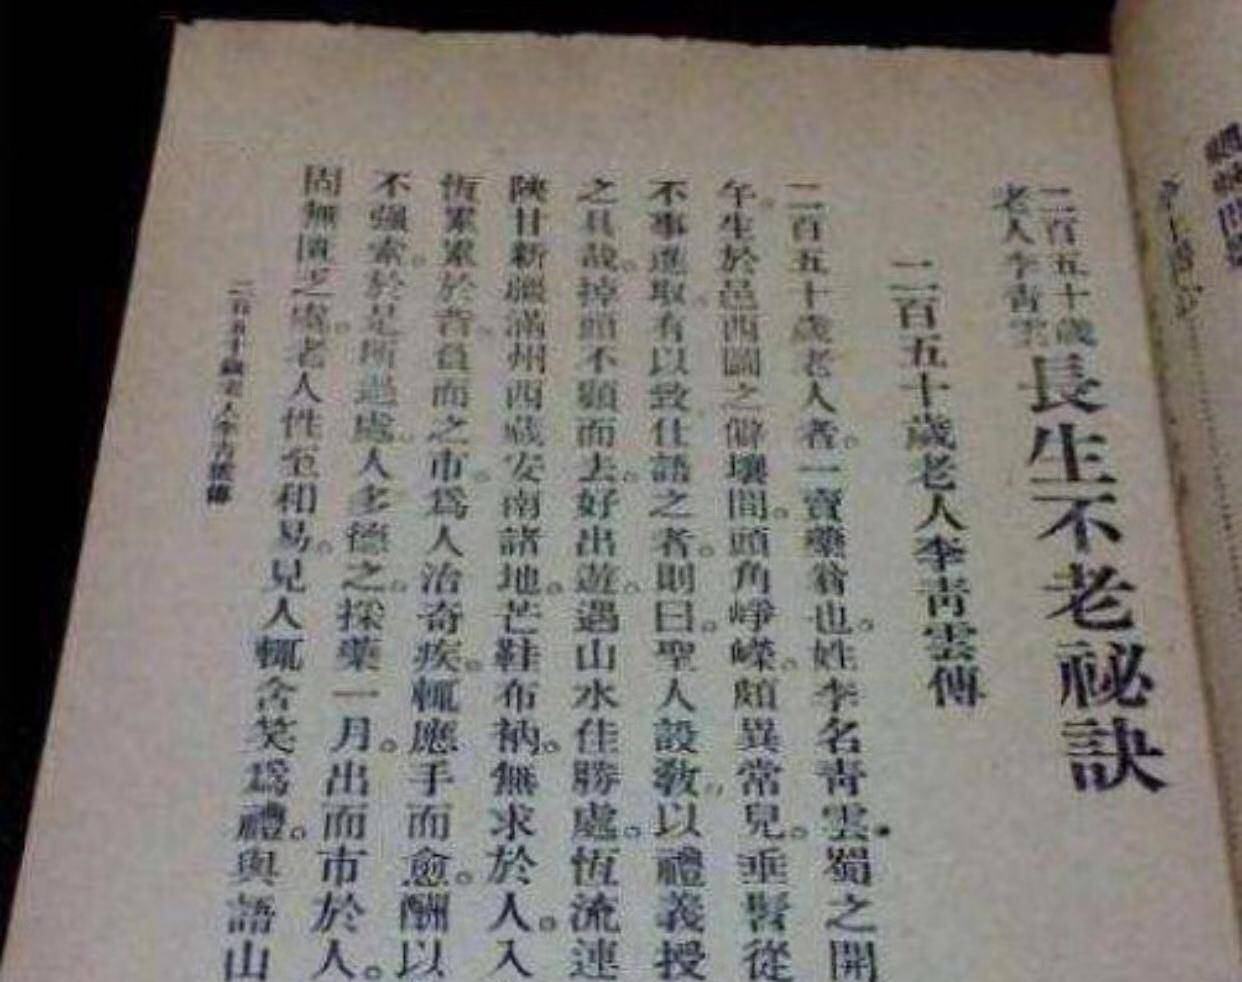 二百五十歲
老人李青雲
長生不老祕訣
二百五十歲老人李青雲傳
二百五十歲老人者。一賣藥翁也。姓李名青雲。蜀之開
午。生於邑西圖之僻壤間。頭角崢嶸。頗異常兒。垂髫從
不事進取。有以致仕語之者。則曰。聖人設教。以禮義授
之具哉。掉頭不顧而去。好出遊。遇山水佳勝處。恆流連
陝甘新疆滿州西藏安南諸地。芒鞋布衲。無求於人。入
恆累累於背。負而之市。爲人治奇疾。輒應手而愈。酬以
不强索。於是所過處。人多德之。採藥一月。出而市於人。
固無匱乏虞。老人性至和易。見人輒含笑爲禮。與語山
二百五十歲老人李青雲傳